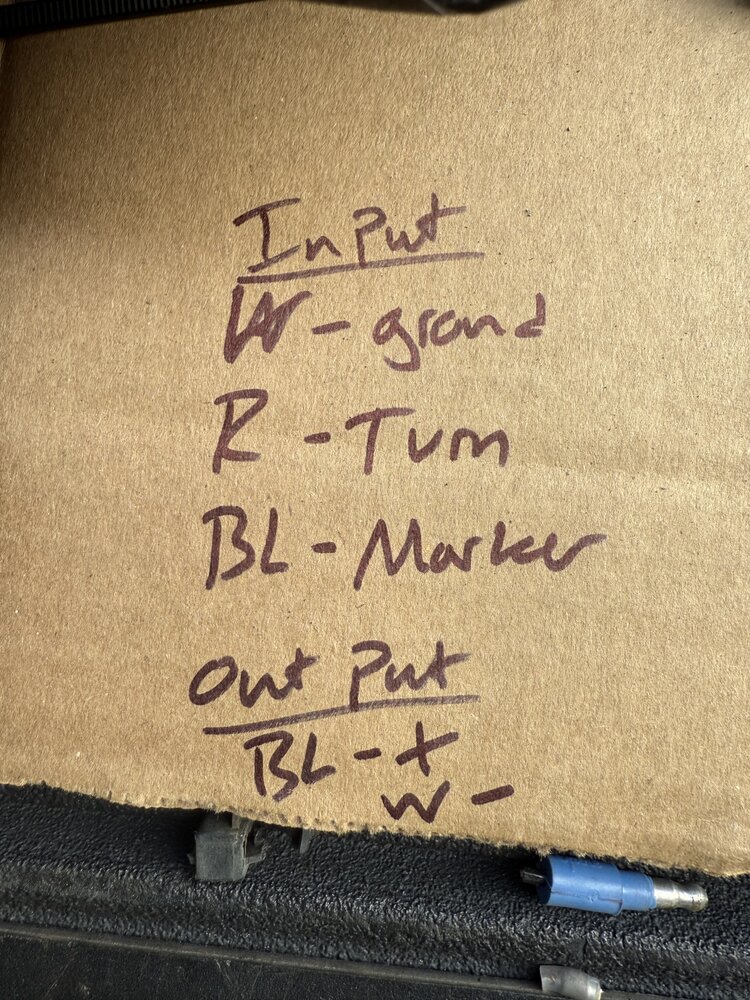 Input
W - grond
R - Turn
BL - Marker
Out Put
BL - +
W -